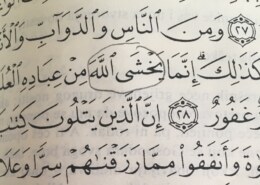 ﴿٢٧﴾ وَمِنَ النَّاسِ وَالدَّوَابِّ وَالْأَنْ
كَذَٰلِكَ ۗ إِنَّمَا يَخْشَى اللَّهَ مِنْ عِبَادِهِ الْعُلَ
غَفُورٌ ﴿٢٨﴾ إِنَّ الَّذِينَ يَتْلُونَ كِتَٰبَ
وٰةَ وَأَنفَقُوا مِمَّا رَزَقْنَٰهُمْ سِرًّا وَعَلَا